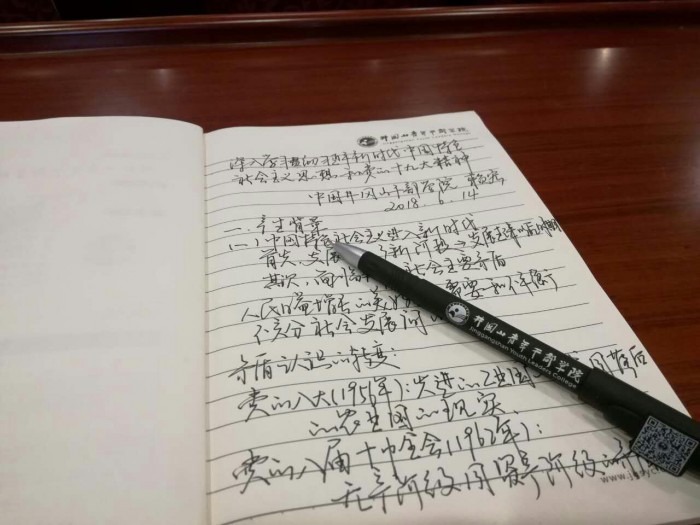 井冈山青年干部学院
Jinggangshan Youth Leaders College
深入学习 习近平新时代中国特色
社会主义思想和党的十九大精神
中国井冈山干部学院
2018.6.14
一、产生背景
(一)中国特色社会主义进入新时代
首先,发展 新阶段→发展起来以后的时期
其次,面临 社会主要矛盾
人民日益增长的美好 需要和不平衡
不充分 社会发展
矛盾认识的转变:
党的八大(1956年):先进的工业国 落后
的农业国的现实
党的八届十中全会(1962年):
无产阶级同资产阶级的
井冈山青年干部学院
Jinggangshan Youth Leaders College